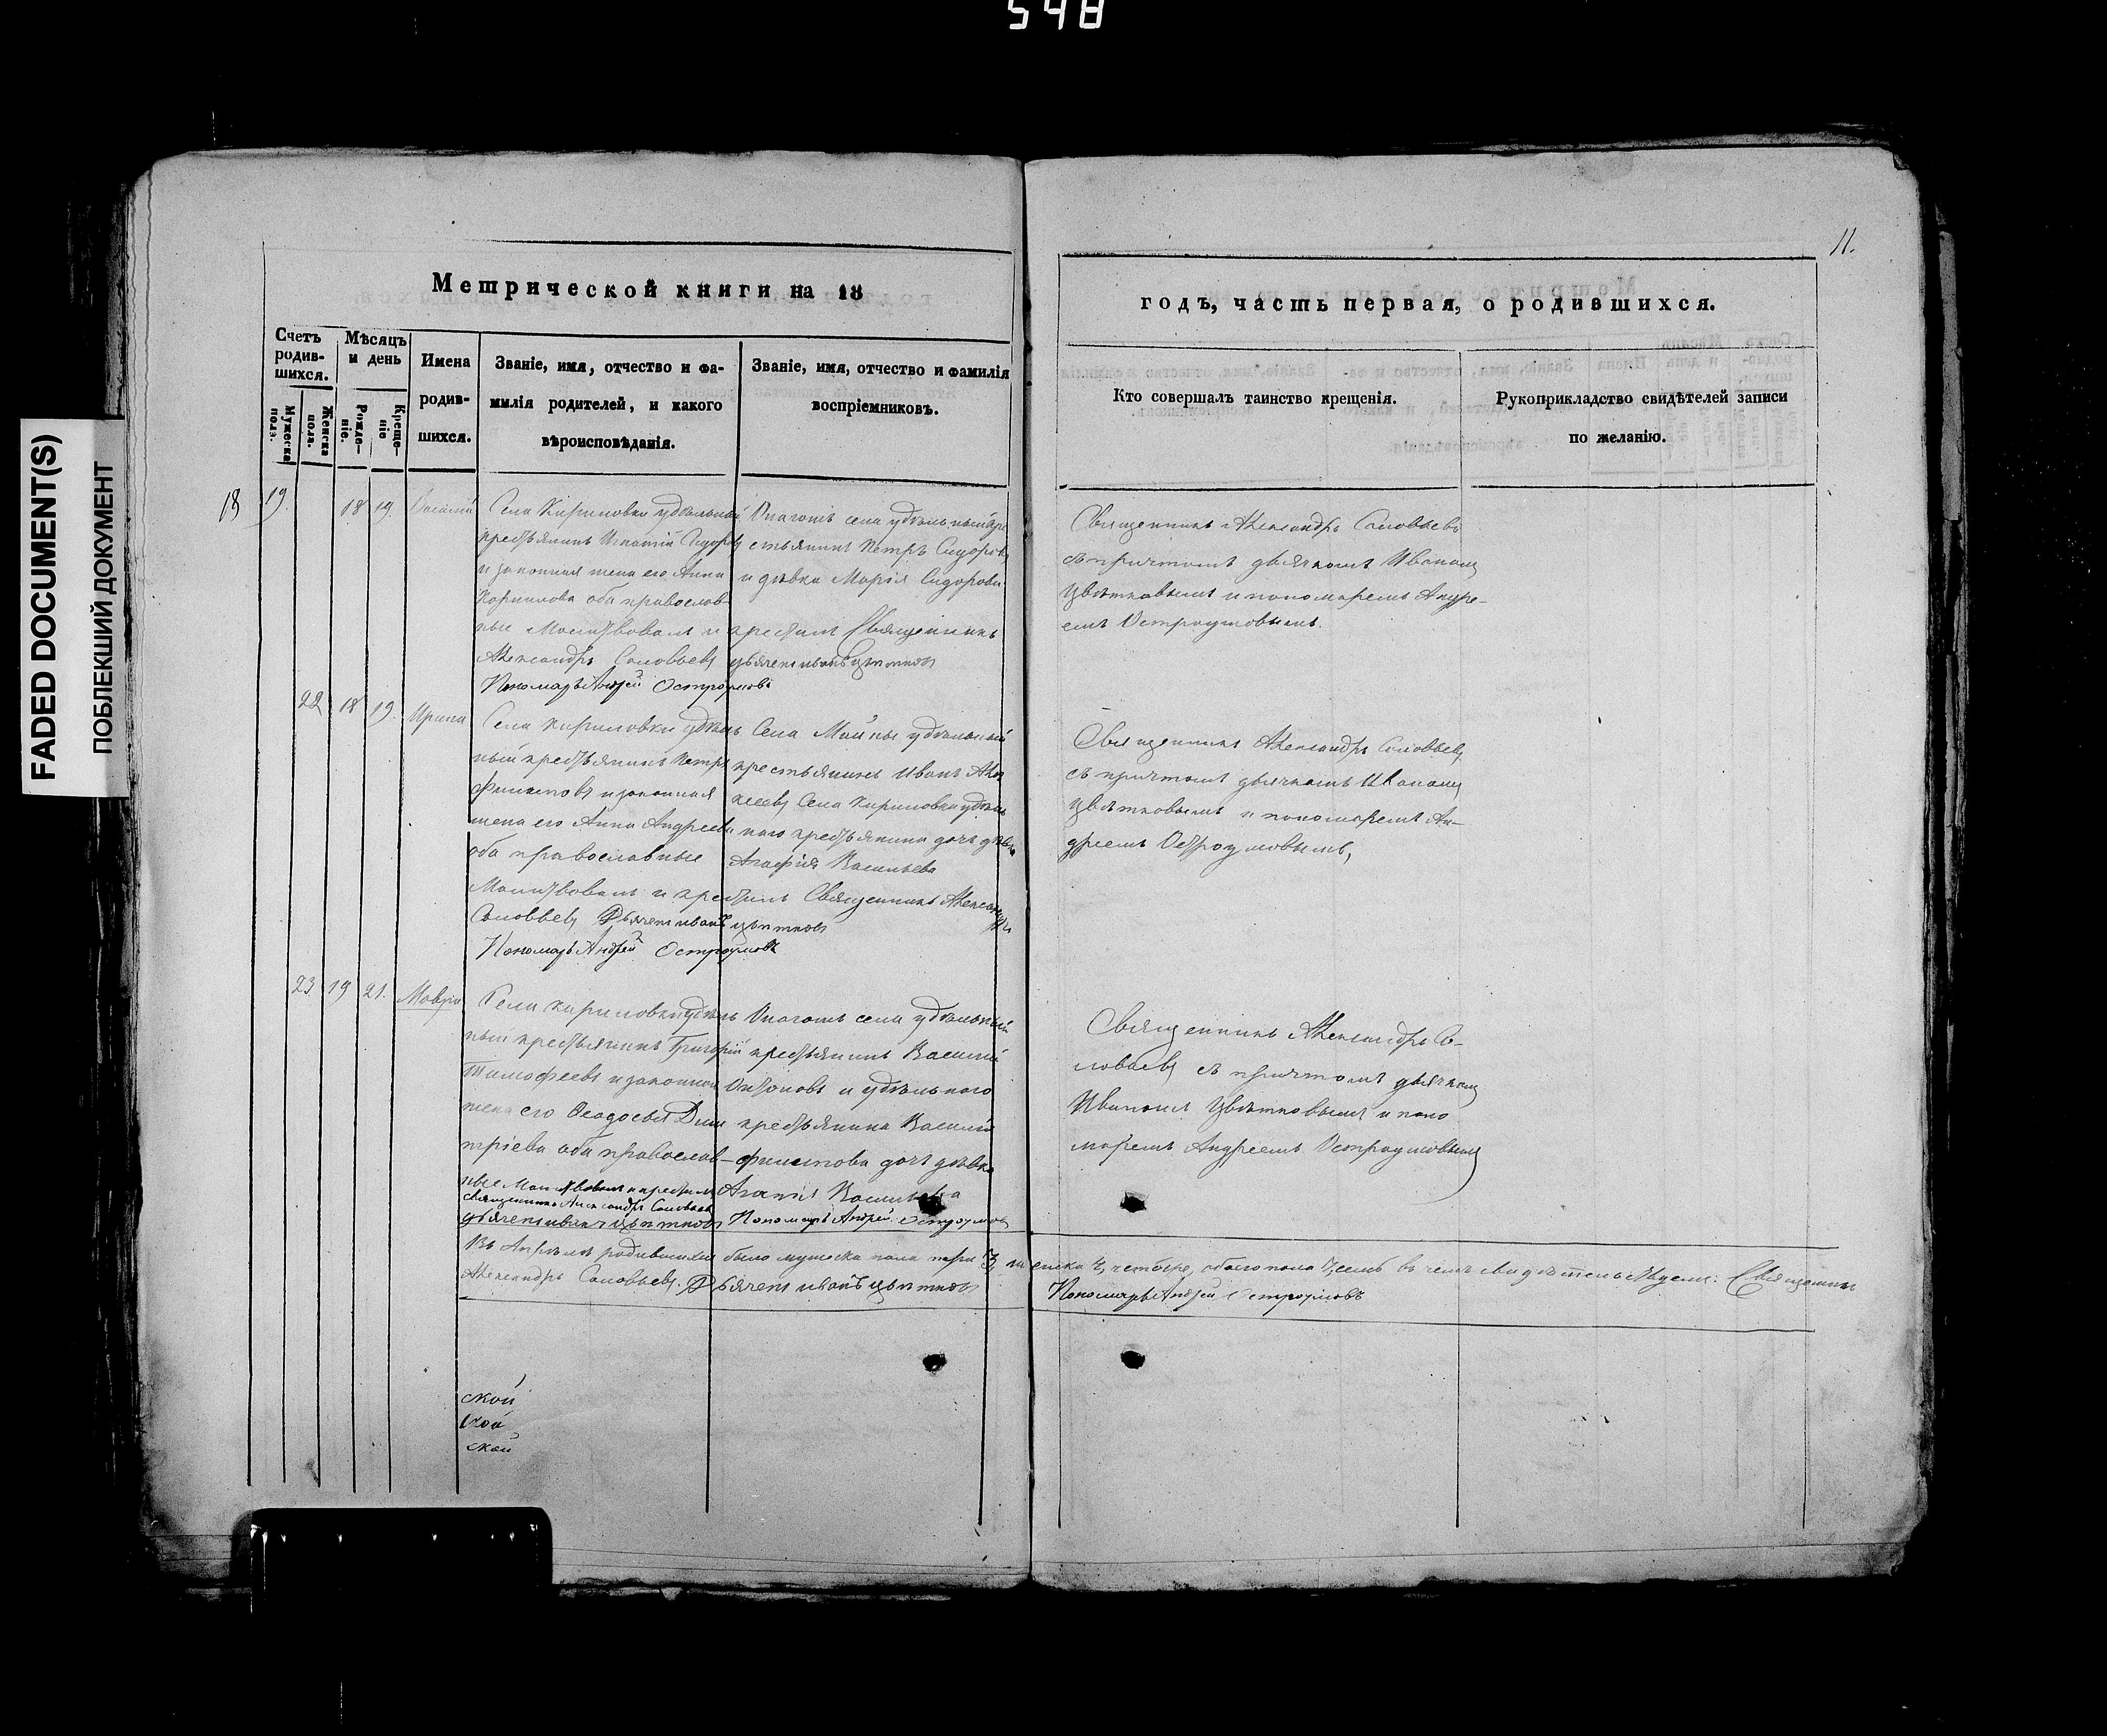 548
FADED DOCUMENT(S)
ПОБЛЕКШИЙ ДОКУМЕНТ
11.
Метрической книги на 18
годъ, часть первая, о родившихся.
Счетъ родив-шихся.
Мужеска пола.
Женска пола.
Мѣсяцъ и день
Рожде-ніе.
Креще-ніе
Имена родив-шихся.
Званіе, имя, отчество и фа-
милія родителей, и какого
вѣроисповѣданія.
Званіе, имя, отчество и фамилія
воспріемниковъ.
Кто совершалъ таинство крещенія.
Рукоприкладство свидѣтелей записи
по желанію.
18 19. 18 19.
Села Кириловки удѣльный
крестьянинъ Игнатій Сидоровъ
и законная жена его Анна
Кирилова оба православ-
ные Молитвовалъ и крестилъ Священникъ
Александръ Соловьевъ Дьячекъ иванъ цвѣтковъ
Пономарь Андрей Остроумовъ
села удѣльный кре
стьянинъ Петръ Сидоровъ
и дѣвка Марія Сидорова
Священникъ Александръ Соловьевъ
съ причтомъ дьячкомъ Иваномъ
Цвѣтковымъ и пономаремъ Андре-
емъ Остроумовымъ.
22 18 19. Ирина
Села Кириловки удѣль
ный крестьянинъ Петръ
Филиповъ и законная
жена его Анна Андреева
оба православные
Молитвовалъ и крестилъ Священникъ Александръ
Соловьевъ Дьячекъ иванъ цвѣтковъ
Пономарь Андрей Остроумовъ
Села Маины удѣльный
крестьянинъ Иванъ
Села Кириловки удѣль
наго крестьянина дочь дѣвка
Агафія Васильева
Священникъ Александръ Соловьевъ
съ причтомъ дьячкомъ Иваномъ
Цвѣтковымъ и пономаремъ Ан-
дреемъ Остроумовымъ,
23 19 21. Мавра
Села Кириловки удѣль
ный крестьянинъ Григорій
Тимофеевъ и законная
жена его Феодосья Дми
тріева оба православ-
ные Молитвовалъ и крестилъ
священникъ Александръ Соловьевъ
дьячекъ иванъ цвѣтковъ Пономарь Андрей Остроумовъ
села удѣльный
крестьянинъ Василій
и удѣльнаго
крестьянина Василія
Филипова дочь дѣвка
Васильева
Священникъ Александръ Со-
ловьевъ съ причтомъ дьячкомъ
Иваномъ Цвѣтковымъ и поно
маремъ Андреемъ Остроумовымъ
Въ Апрѣлѣ родившихся было мужеска пола три 3, женска 4, четыре, обоего пола 7, семь въ чемъ и свидѣтельствуемъ: Священникъ
Александръ Соловьевъ. Дьячекъ иванъ цвѣтковъ Пономарь Андрей Остроумовъ
ской
ской
ской